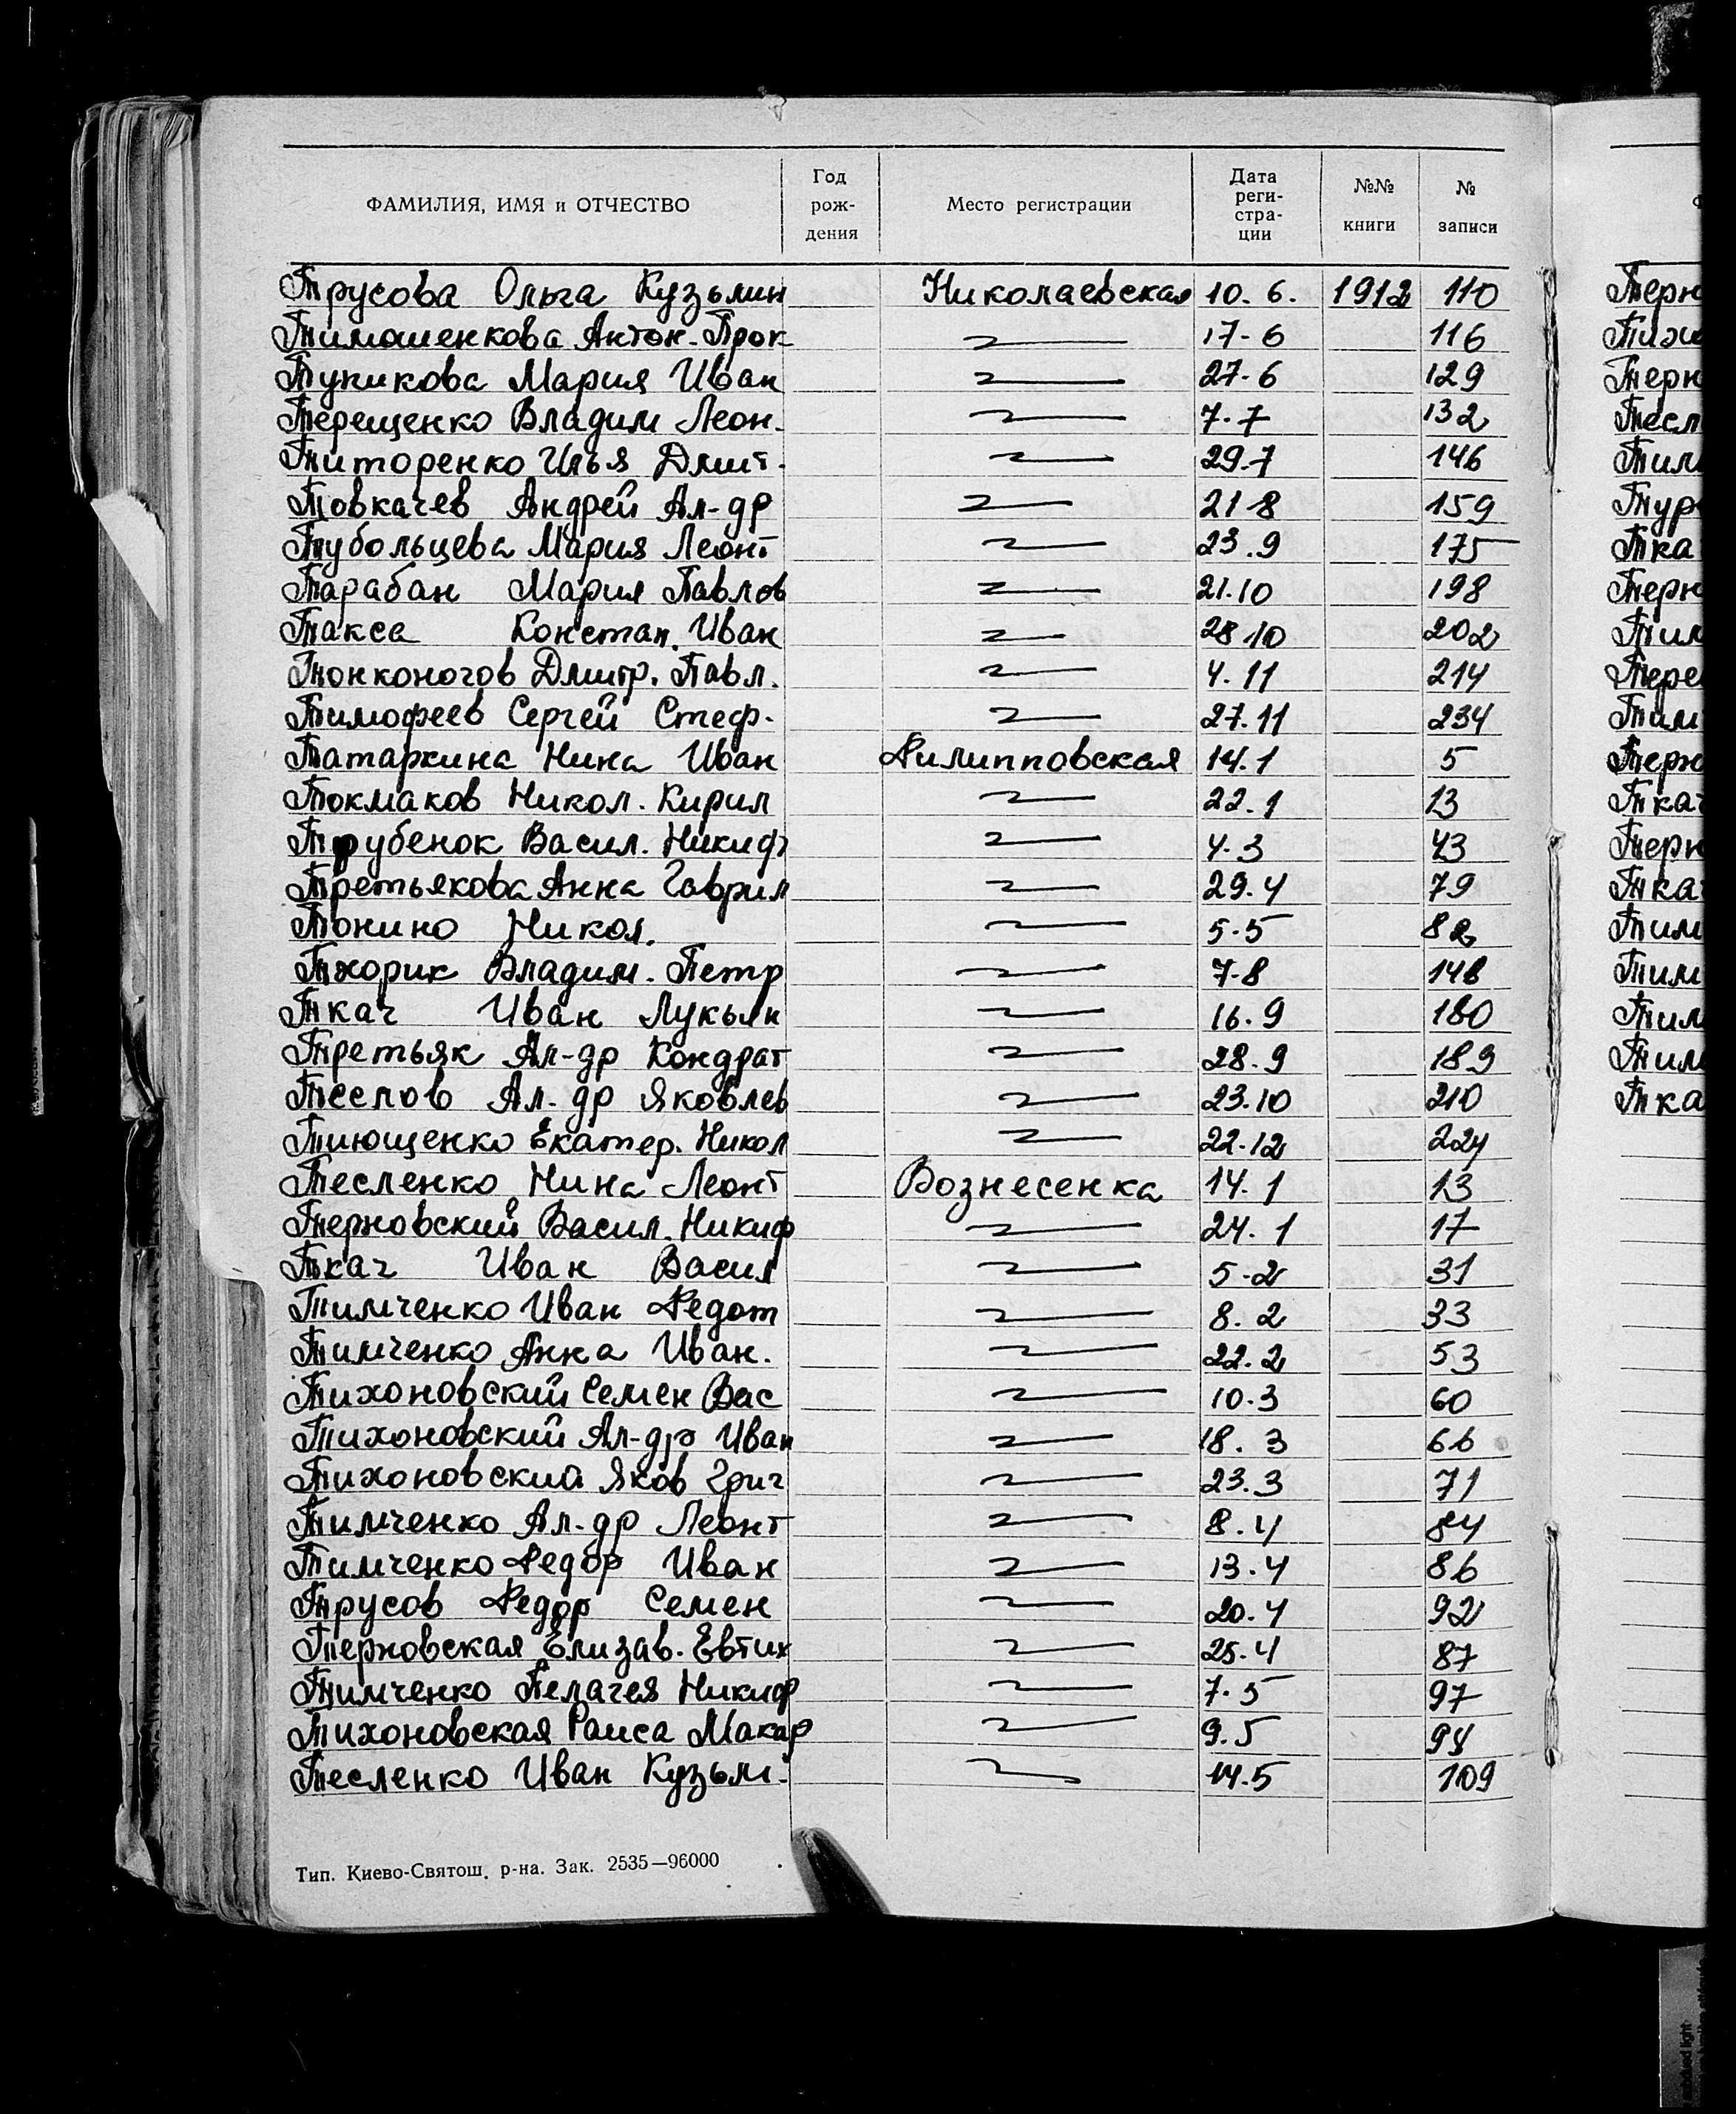 ФАМИЛИЯ, ИМЯ и ОТЧЕСТВО Год рож-дения Место регистрации Дата реги-стра-ции №№ книги № записи
Трусова Ольга Кузьмин Николаевская 10.6. 1912 110
Тимошенкова Антон. Прок 17-6 116
Тупикова Мария Иван 27-6 129
Терещенко Владим Леон. 7.7 132
Титоренко Илья Дмит. 29.7 146
Товкачев Андрей Ал-др 21-8 159
Тубольцева Мария Леонт 23.9 175
Тарабан Мария Павлов 21.10 198
Такса Констан. Иван 28.10 202
Тонконогов Дмитр. Павл. 4.11 214
Тимофеев Сергей Стеф. 27.11 234
Татаркина Нина Иван Филипповская 14.1 5
Токмаков Никол. Кирил 22.1 13
Трубенок Васил. Никиф 4.3 43
Третьякова Анна Гаврил 29.4 79
Тонино Никол. 5-5 82
Тхорик Владим. Петр 7-8 148
Ткач Иван Лукьян 16.9 180
Третьяк Ал-др Кондрат 28.9 189
Теслов Ал-др Яковлев 23.10 210
Тиющенко Екатер. Никол 22-12 224
Тесленко Нина Леонт Вознесенка 14.1 13
Терновский Васил. Никиф 24.1 17
Ткач Иван Васил 5-2 31
Тимченко Иван Федот 8.2 33
Тимченко Анна Иван. 22.2 53
Тихоновский Семен Вас 10.3 60
Тихоновский Ал-др Иван 18.3 66
Тихоновский Яков Григ 23.3 71
Тимченко Ал-др Леонт 8.4 84
Тимченко Федор Иван 13.4 86
Трусов Федор Семен 20.4 92
Терновская Елизав. Евтих 25.4 87
Тимченко Пелагея Никиф 7.5 97
Тихоновская Раиса Макар 9.5 98
Тесленко Иван Кузьм. 14.5 109
Тип. Киево-Святош. р-на. Зак. 2535—96000